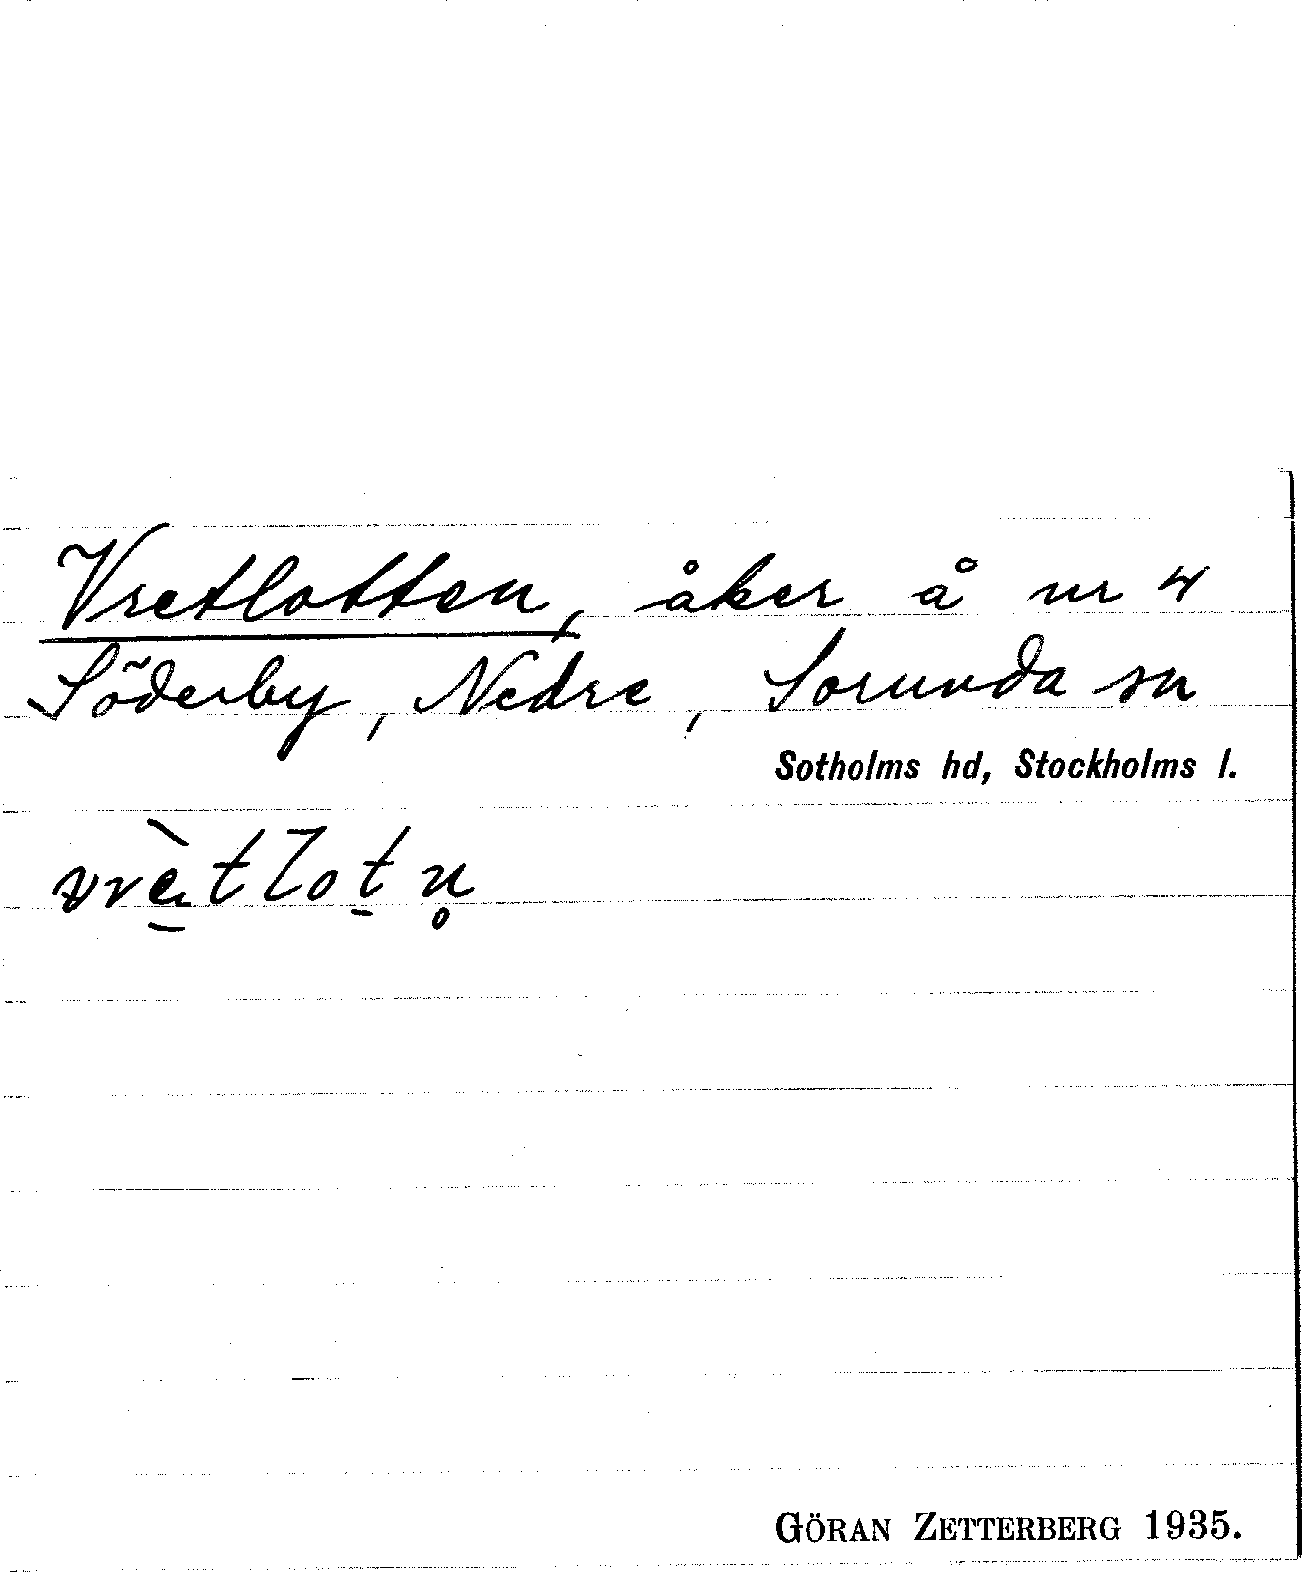 Vretlotten, åker å nr 4
Söderby, Nedre, Sorunda sn
Sotholms hd, Stockholms l.
vrè̱tlot̠n̥
GÖRAN ZETTERBERG 1935.